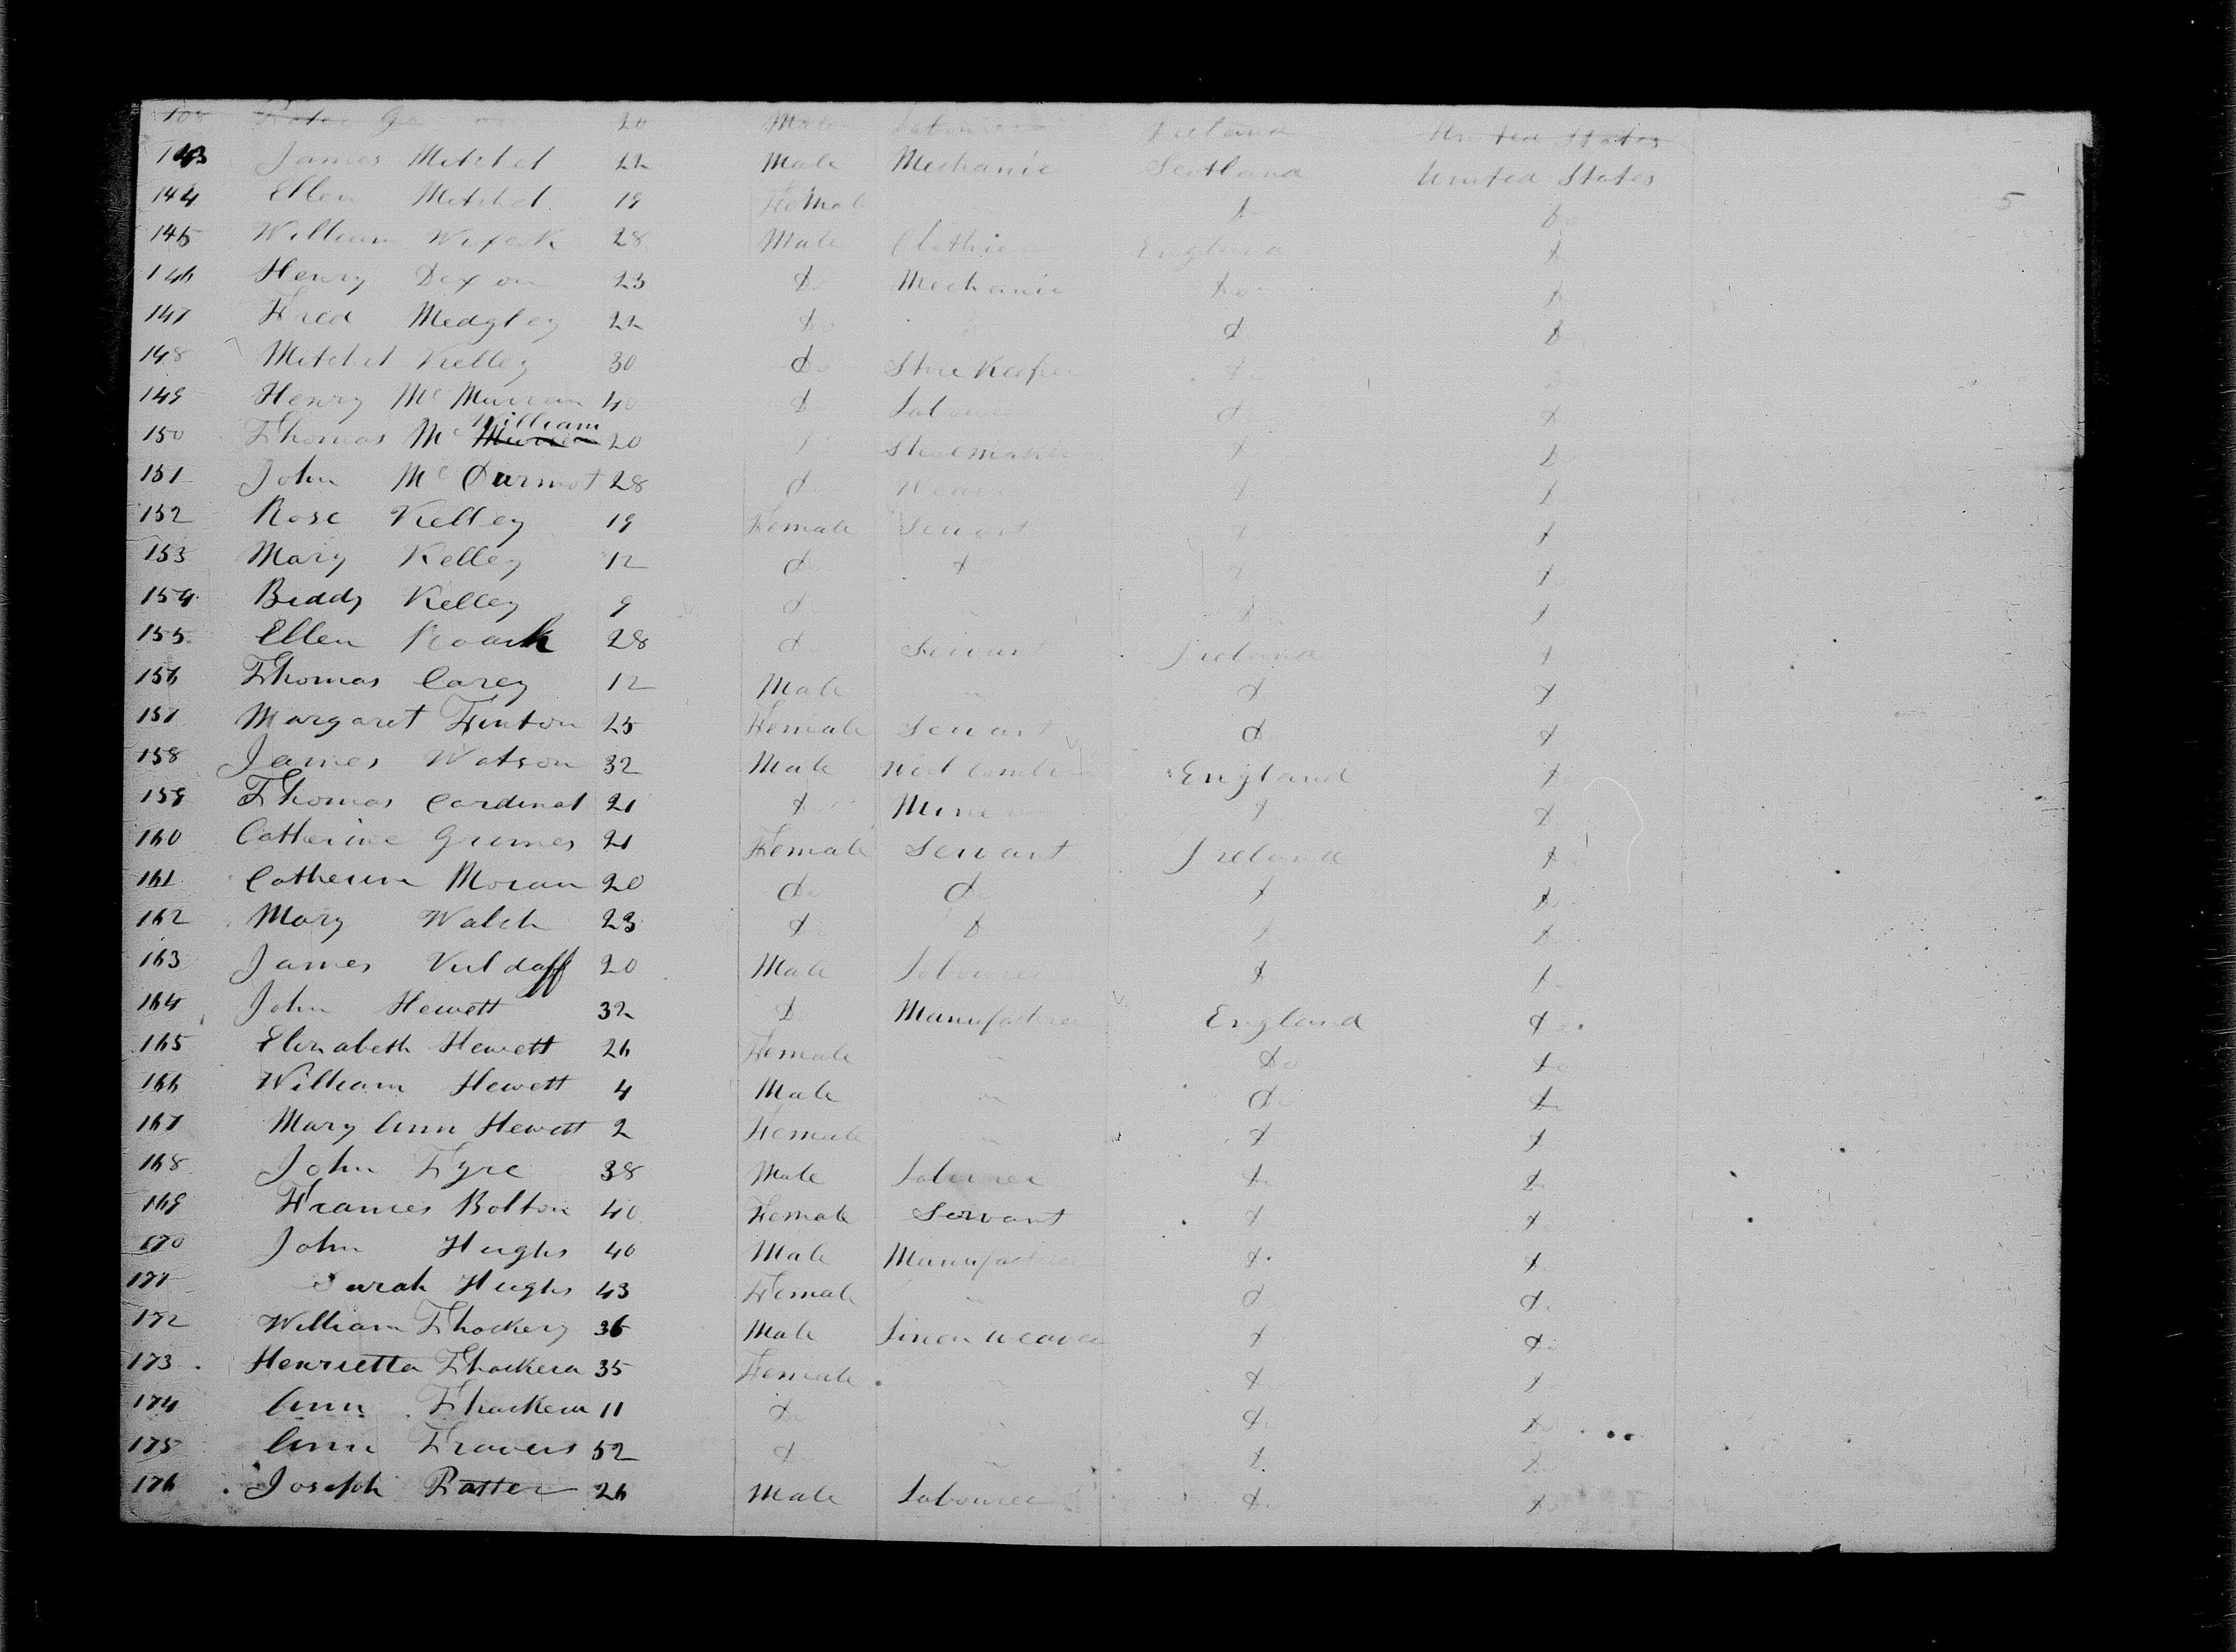 20 Male Labourer Ireland United States
143 James Mitchel 22 Male Mechanic Scotland United States
5
144 Ellen Mitchel 19 Female Do Do
145 William 28 Male Clothier England Do
146 Henry Dixon 23 Do Mechanic Do Do
147 Fred Medgley 22 Do Do Do
148 Mitchel Kelley 30 Do Store Keeper Do Do
149 Henry Mc Murran 40 Do Labourer Do Do
150 Thomas Mc William 20 Do Shoemaker Do Do
151 John Mc Durmot 28 Do Weaver Do Do
152 Rose Kelley 19 Female Servant Do Do
153 Mary Kelley 12 Do Do Do Do
154 Biddy Kelley 9 Do " Do Do
155 Ellen Roark 28 Do Servant Ireland Do
156 Thomas Carey 12 Male " Do Do
157 Margaret Finton 25 Female Servant Do Do
158 James Watson 32 Male Wool Comber England Do
159 Thomas Cardinal 21 Do Miner Do Do
160 Catherine Grimes 21 Female Servant Ireland Do
161 Catherine Moran 20 Do Do Do Do
162 Mary Walch 23 Do Do Do Do
163 James 20 Male Labourer Do Do
164 John Hewett 32 Do Manufacturer England Do
165 Elizabeth Hewett 26 Female " Do Do
166 William Hewett 4 Male " Do Do
167 Mary Ann Hewett 2 Female " Do Do
168 John Tyre 38 Male Labourer Do Do
169 Frances Bolton 40 Female Servant Do Do
170 John Hughs 40 Male Manufacturer Do Do
171 Sarah Hughs 43 Female " Do Do
172 William Thackery 36 Male Linen Weaver Do Do
173 Henrietta Thackera 35 Female " Do Do
174 Ann Thackera 11 Do " Do Do
175 Ann Travers 52 Do " Do Do
176 Joseph Ratter 26 Male Labourer Do Do